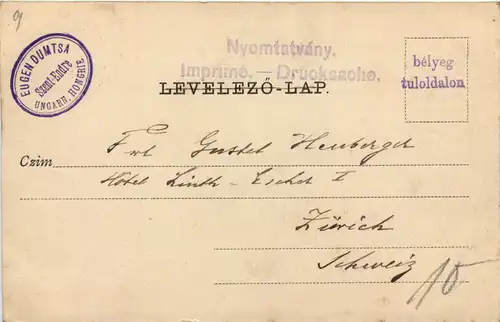 9
EUGEN DUMTSA
Szent-Endre
UNGARN, HONGRIE
Nyomtatvány.
Imprimé. — Drucksache.
LEVELEZŐ-LAP.
bélyeg
tuloldalon
Czim
Frl Gustel Heuberger
Hôtel Linth-Escher I
Zürich
Schweiz
10